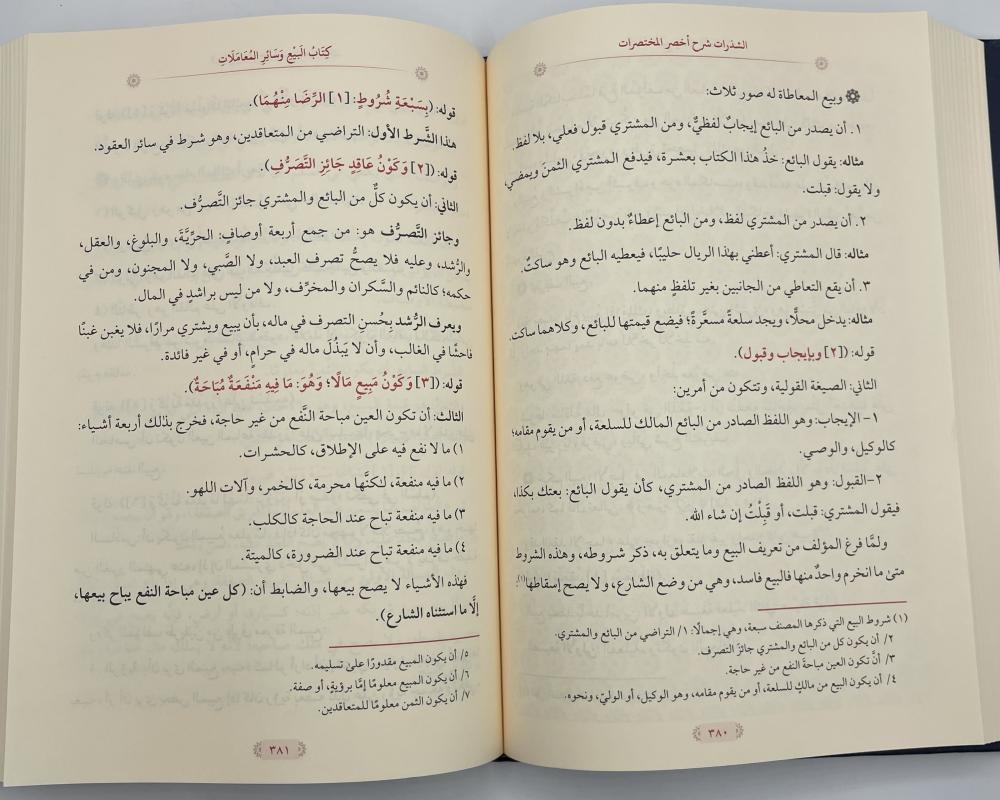 الشذرات شرح أخصر المختصرات
وبيع المعاطاة له صور ثلاث:
١. أن يصدر من البائع إيجابٌ لفظيٌّ، ومن المشتري قبول فعلي، بلا لفظ.
مثاله: يقول البائع: خذُ هذا الكتاب بعشرة، فيدفع المشتري الثمنَ ويمضي،
ولا يقول: قبلت.
٢. أن يصدر من المشتري لفظ، ومن البائع إعطاءٌ بدون لفظ.
مثاله: قال المشتري: أعطني بهذا الريال حليبًا، فيعطيه البائع وهو ساكتٌ.
٣. أن يقع التعاطي من الجانبين بغير تلفظٍ منهما.
مثاله: يدخل محلًّا، ويجد سلعةً مسعَّرةً؛ فيضع قيمتها للبائع، وكلاهما ساكت.
قوله: ([٢] وبإيجاب وقبول).
الثاني: الصيغة القولية، وتتكون من أمرين:
١- الإيجاب: وهو اللفظ الصادر من البائع المالك للسلعة، أو من يقوم مقامه؛
كالوكيل، والوصي.
٢-القبول: وهو اللفظ الصادر من المشتري، كأن يقول البائع: بعتك بكذا،
فيقول المشتري: قبلت، أو قَبِلْتُ إن شاء الله.
ولمَّا فرغ المؤلف من تعريف البيع وما يتعلق به، ذكر شروطه، وهذه الشروط
متىٰ ما انخرم واحدٌ منها فالبيع فاسد، وهي من وضع الشارع، ولا يصح إسقاطها(١):
(١) شروط البيع التي ذكرها المصنف سبعة، وهي إجمالًا: ١/ التراضي من البائع والمشتري.
٢/ أن يكون كل من البائع والمشتري جائزَ التصرف.
٣/ أنَّ تكون العين مباحةَ النفع من غير حاجة.
٤/ أن يكون البيع من مالكٍ للسلعة، أو من يقوم مقامه، وهو الوكيل، أو الوليّ، ونحوه.
٣٨٠
كِتَابُ البَيْعِ وَسَائِرِ المُعَامَلَاتِ
قوله: (بِسَبْعَةِ شُرُوطٍ: [١] الرِّضَا مِنْهُمَا).
هذا الشَّرط الأول: التراضي من المتعاقدين، وهو شرط في سائر العقود.
قوله: ([٢] وَكَوْنُ عَاقِدٍ جَائِزِ التَّصَرُّفِ).
الثاني: أن يكون كلٌّ من البائع والمشتري جائز التَّصرُّف.
وجائز التَّصرُّف هو: من جمع أربعة أوصافٍ: الحرِّيَّةَ، والبلوغ، والعقل،
والرُّشد، وعليه فلا يصحُّ تصرف العبد، ولا الصَّبي، ولا المجنون، ومن في
حكمه؛ كالنائم والسَّكران والمخرِّف، ولا من ليس براشدٍ في المال.
ويعرف الرُّشد بِحُسنِ التصرف في ماله، بأن يبيع ويشتري مرارًا، فلا يغبن غبنًا
فاحشًا في الغالب، وأن لا يَبذُلَ ماله في حرامٍ، أو في غير فائدة.
قوله: ([٣] وَكَوْنُ مَبِيعٍ مَالًا؛ وَهُوَ: مَا فِيهِ مَنْفَعَةٌ مُبَاحَةٌ).
الثالث: أن تكون العين مباحة النَّفع من غير حاجة، فخرج بذلك أربعة أشياء:
١) ما لا نفع فيه على الإطلاق، كالحشرات.
٢) ما فيه منفعة، لكنَّها محرمة، كالخمر، وآلات اللهو.
٣) ما فيه منفعة تباح عند الحاجة كالكلب.
٤) ما فيه منفعة تباح عند الضرورة، كالميتة.
فهذه الأشياء لا يصح بيعها، والضابط أن: (كل عين مباحة النفع يباح بيعها،
إلَّا ما استثناه الشارع).
٥/ أن يكون المبيع مقدورًا علىٰ تسليمه.
٦/ أن يكون المبيع معلومًا إمَّا برؤيةٍ، أو صفة.
٧/ أن يكون الثمن معلومًا للمتعاقدين.
٣٨١